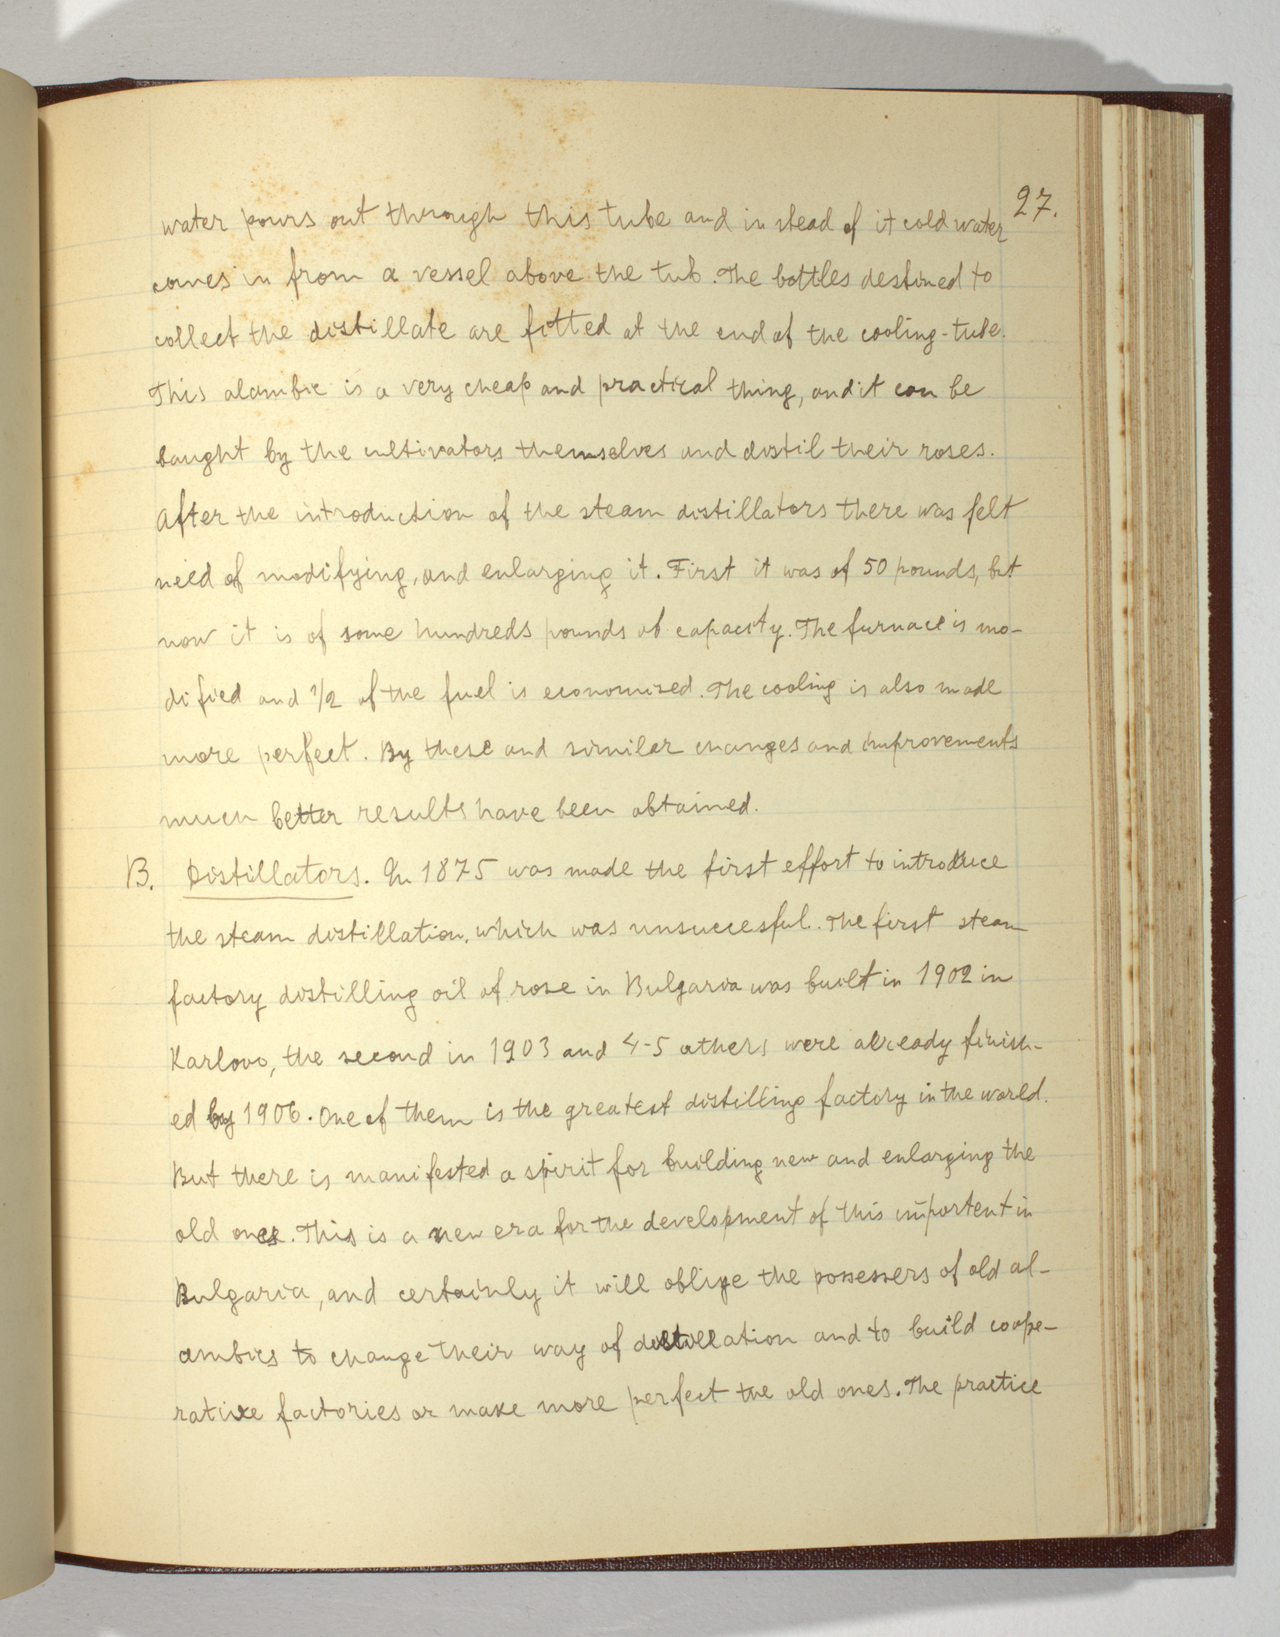 27.
water pours out through this tube and in stead of it cold water
comes in from a vessel above the tub. The bottles destined to
collect the distillate are fitted at the end of the cooling-tube.
This alambic is a very cheap and practical thing, and it can be
baught by the cultivators themselves and distil their roses.
After the introduction of the steam distillators there was felt
need of modifying, and enlarging it. First it was of 50 pounds, but
now it is of some hundreds pounds of capacity. The furnace is mo-
dified and 1/2 of the fuel is economized. The cooling is also made
more perfect. By these and similar changes and improvements
much better results have been obtained.
B. Distillators. In 1875 was made the first effort to introduce
the steam distillation, which was unsuccesful. The first steam
factory distilling oil of rose in Bulgaria was built in 1902 in
Karlovo, the second in 1903 and 4-5 others were already finish-
ed by 1906. One of them is the greatest distilling factory in the world.
But there is manifested a spirit for building new and enlarging the
old ones. This is a new era for the development of this important in
Bulgaria, and certainly it will oblige the possessers of old al-
ambics to change their way of distillation and to build coope-
rative factories or make more perfect the old ones. The practice